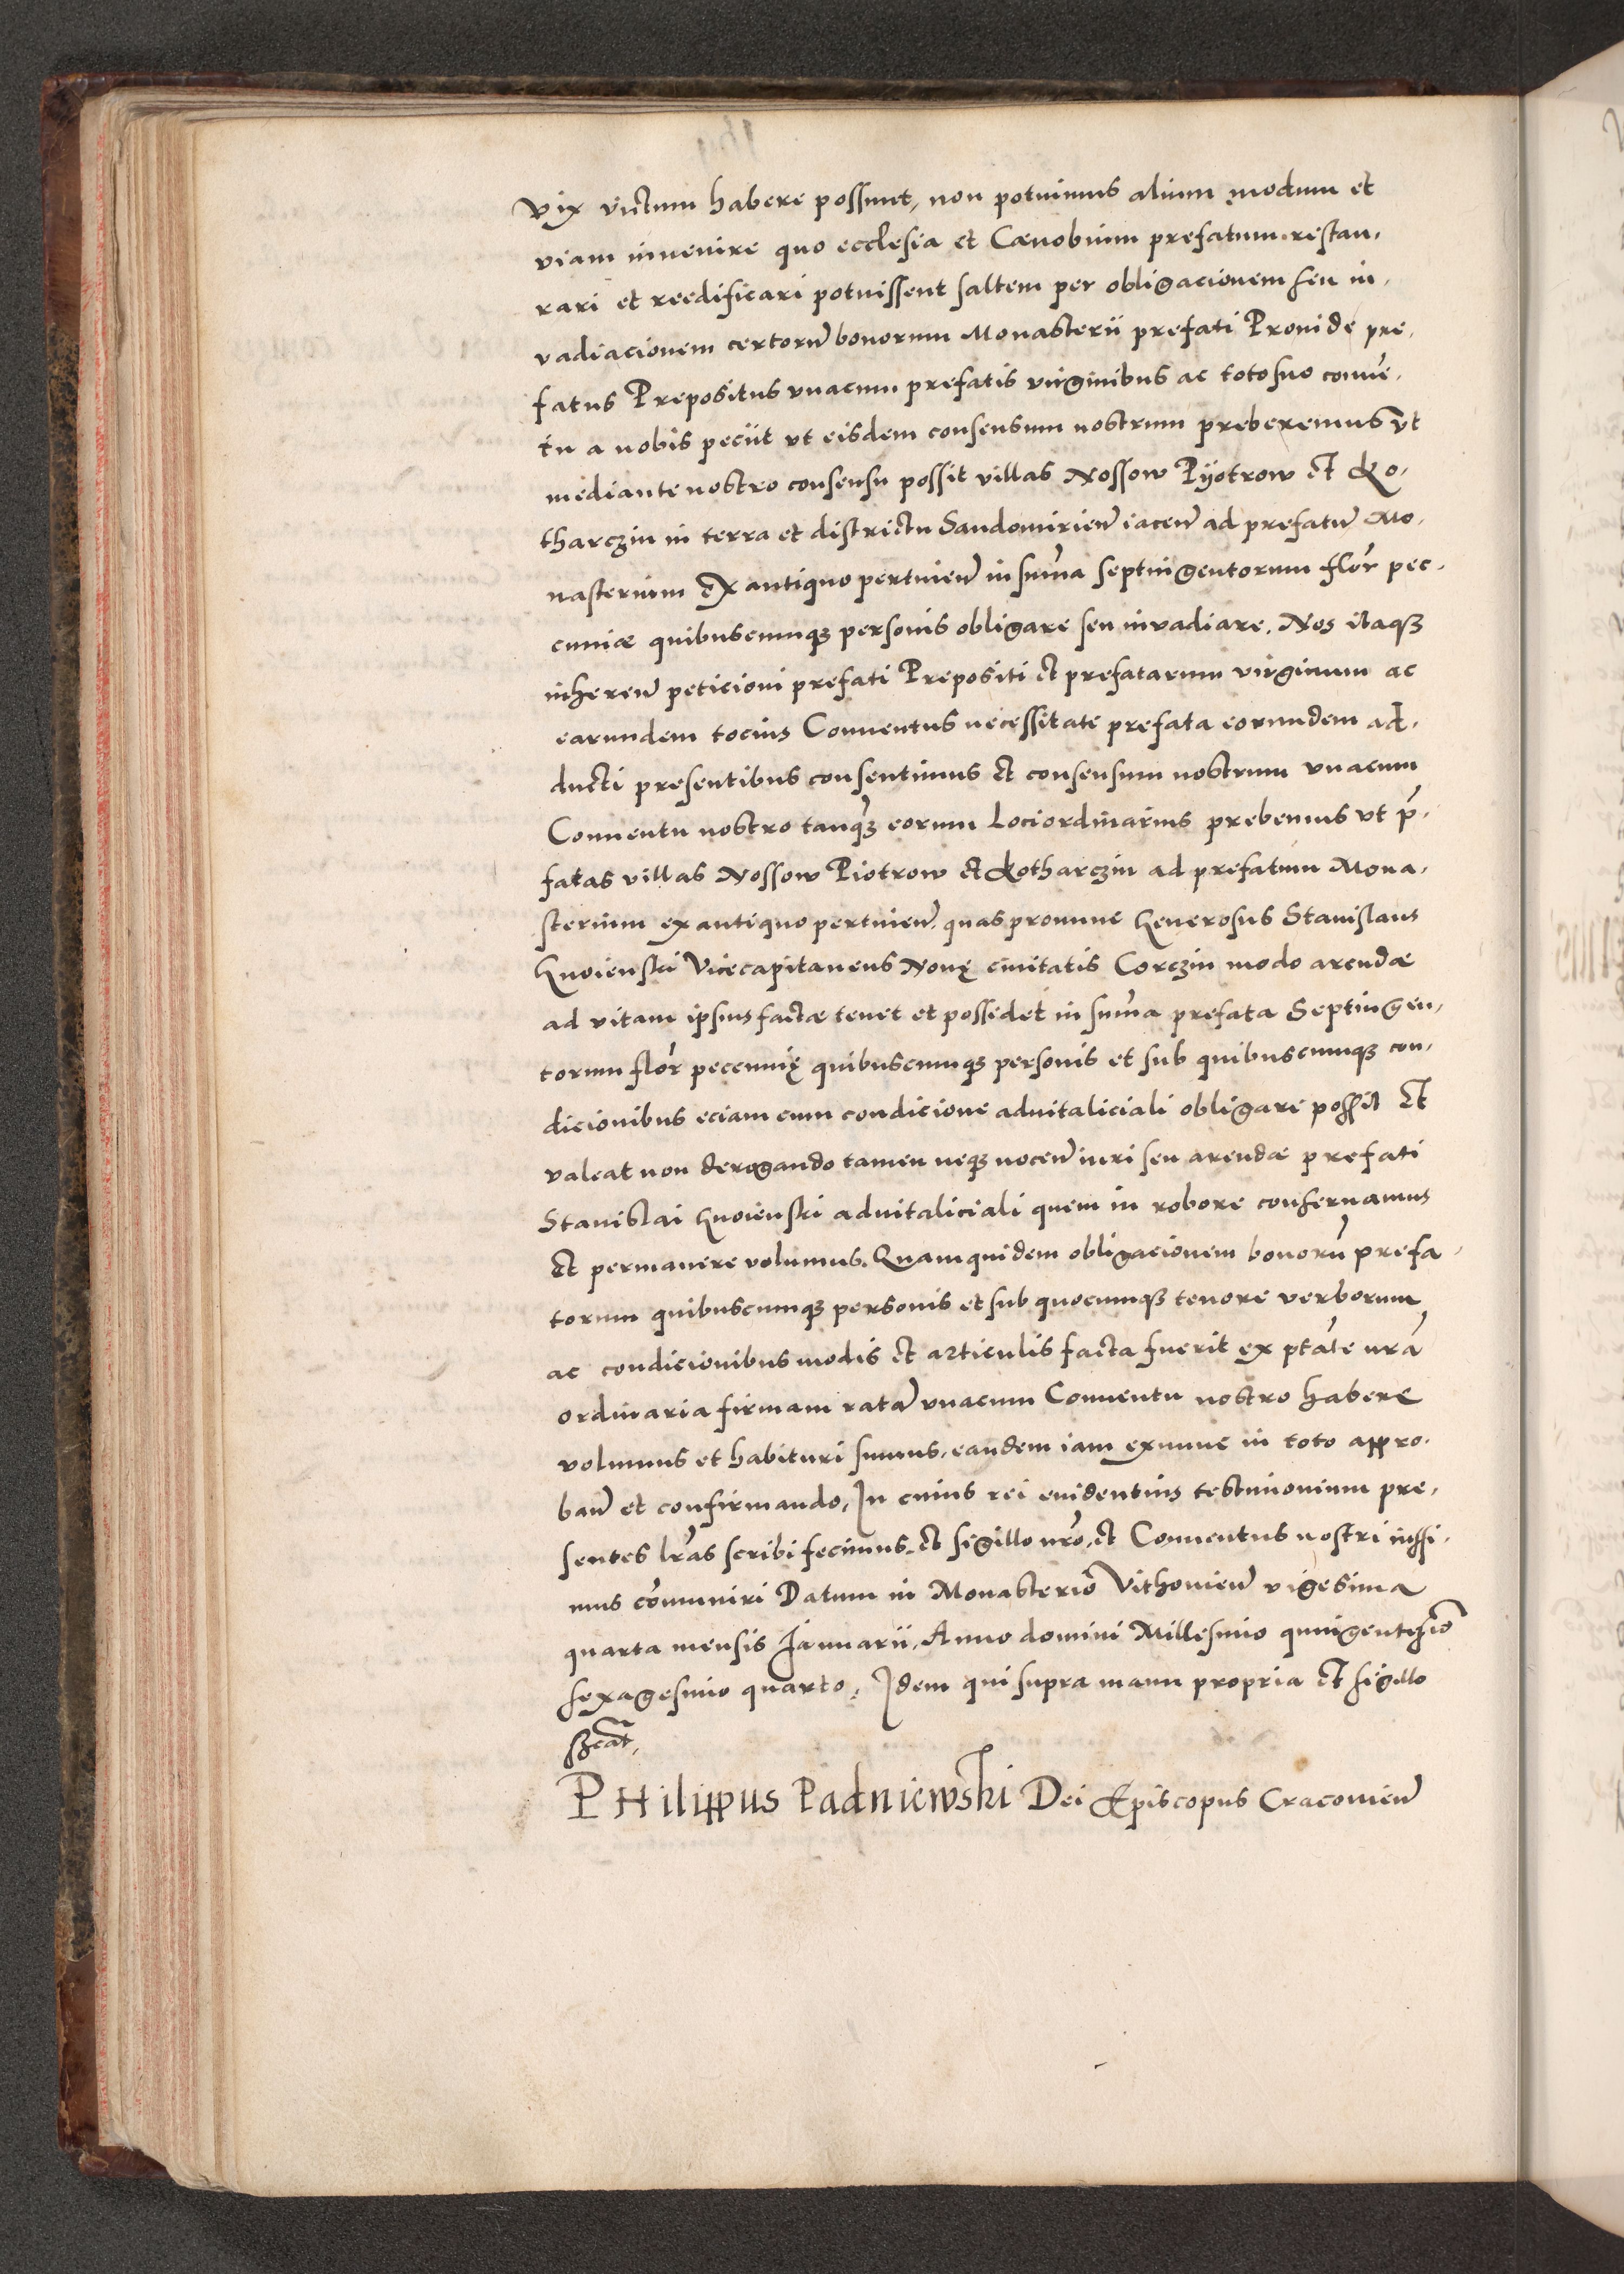 Vix victum habere possunt, non potuimus alium modum et
viam invenire quo ecclesia et Cœnobium prefatum restau,
rari et reedificari potuissent saltem per obligacionem seu in,
vadiacionem certorū bonorum Monasterii prefati Proinde pre,
fatus Prepositus vnacum prefatis virginibus ac toto suo conuē,
tu a nobis peciit vt eisdem consensum nostrum preberemus vt
mediante nostro consensu possit villas Nossow Pyotrow et Ko,
tharczin in terra et districtu Sandomirień iaceń ad prefatū Mo,
nasterium Ex antiquo pertinień in suma septingentorum flor pec,
cuniæ quibuscumqȝ personis obligare seu invadiare. Nos itaqȝ
inhereń peticioni prefati Prepositi et prefatarum virginum ac
earundem tocius Conuentus necessitate prefata eorundem ad,
ducti presentibus consentimus et consensum nostrum vnacum
Conuentu nostro tanqȝ eorum Loci ordinarius prebemus vt p̄,
fatas villas Nossow Piotrow et Kotharczin ad prefatum Mona,
sterium ex antiquo pertinień. quas pronunc Generosus Stanislaus
Gnoienski Vicecapitaneus Nouę ciuitatis Corczin modo arendæ
ad vitam ipsius factæ tenet et possidet in suma prefata Septingen,
torum flor peccunię quibuscumqȝ personis et sub quibuscumqȝ con,
dicionibus eciam cum condicione aduitaliciali obligare possit Et
valeat non derogando tamen neqȝ noceń iuri seu arendæ prefati
Stanislai Gnoienski aduitaliciali quem in robore conseruamus
et permanere volumus. Quamquidem obligacionem bonorū prefa,
torum quibuscumqȝ personis et sub quocumqȝ tenore verborum
ac condicionibus modis et articulis facta fuerit ex ptāte nrā
ordinaria firmam ratā vnacum Conuentu nostro habere
volumus et habituri sumus, eandem iam exnunc in toto appro,
bań et confirmando, In cuius rei euidentius testimonium pre,
sentes lrās scribi fecimus, et sigillo nrō, et Conuentus nostri iussi,
mus comuniri Datum in Monasterio Vithouień vigesima
quarta mensis Januarii, Anno domini Millesimo quingentesimo
sexagesimo quarto, Idem qui supra manu propria et sigillo
PHilippus Padniewski Dei Episcopus Cracouień